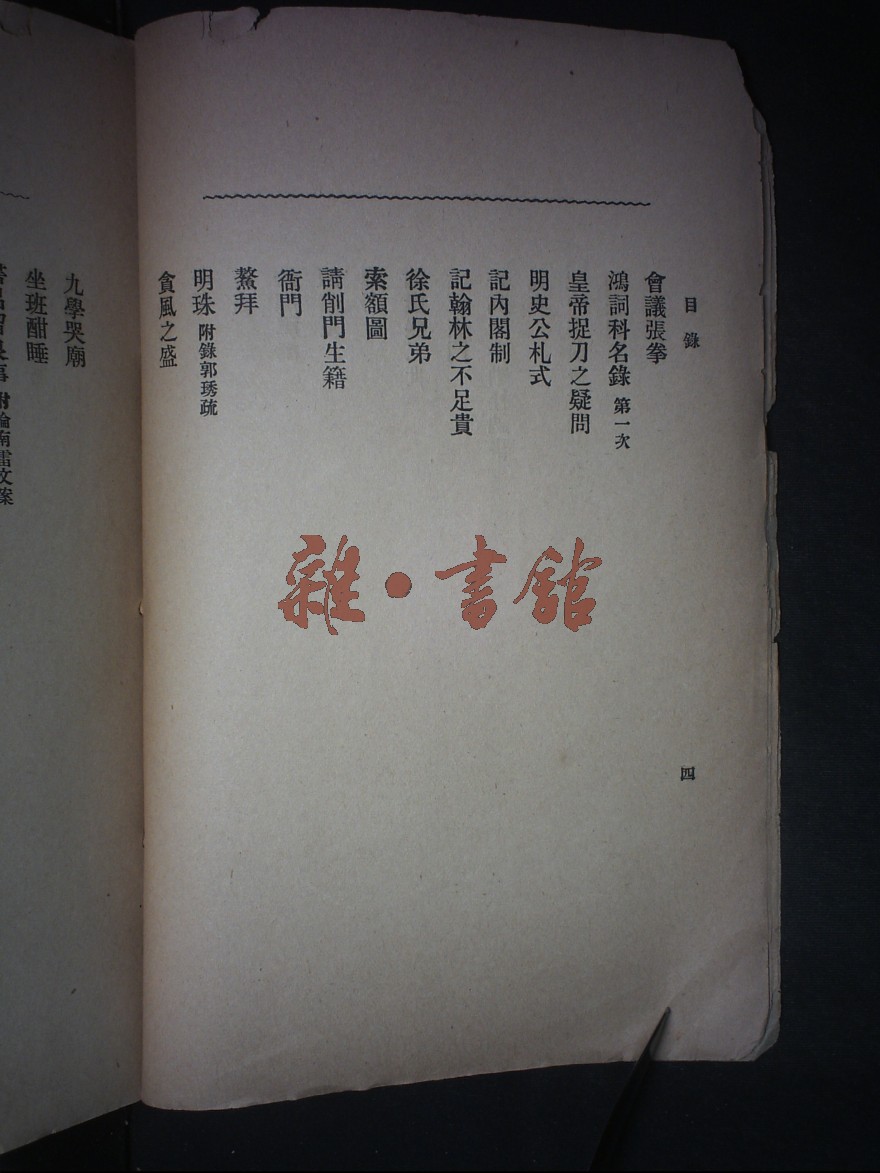 目錄
會議張拳
鴻詞科名錄 第一次
皇帝捉刀之疑問
明史公札式
記內閣制
記翰林之不足貴
徐氏兄弟
索額圖
請削門生籍
衙門
鰲拜
明珠 附錄郭琇疏
貪風之盛
四
雜·書館
九學哭廟
坐班酣睡